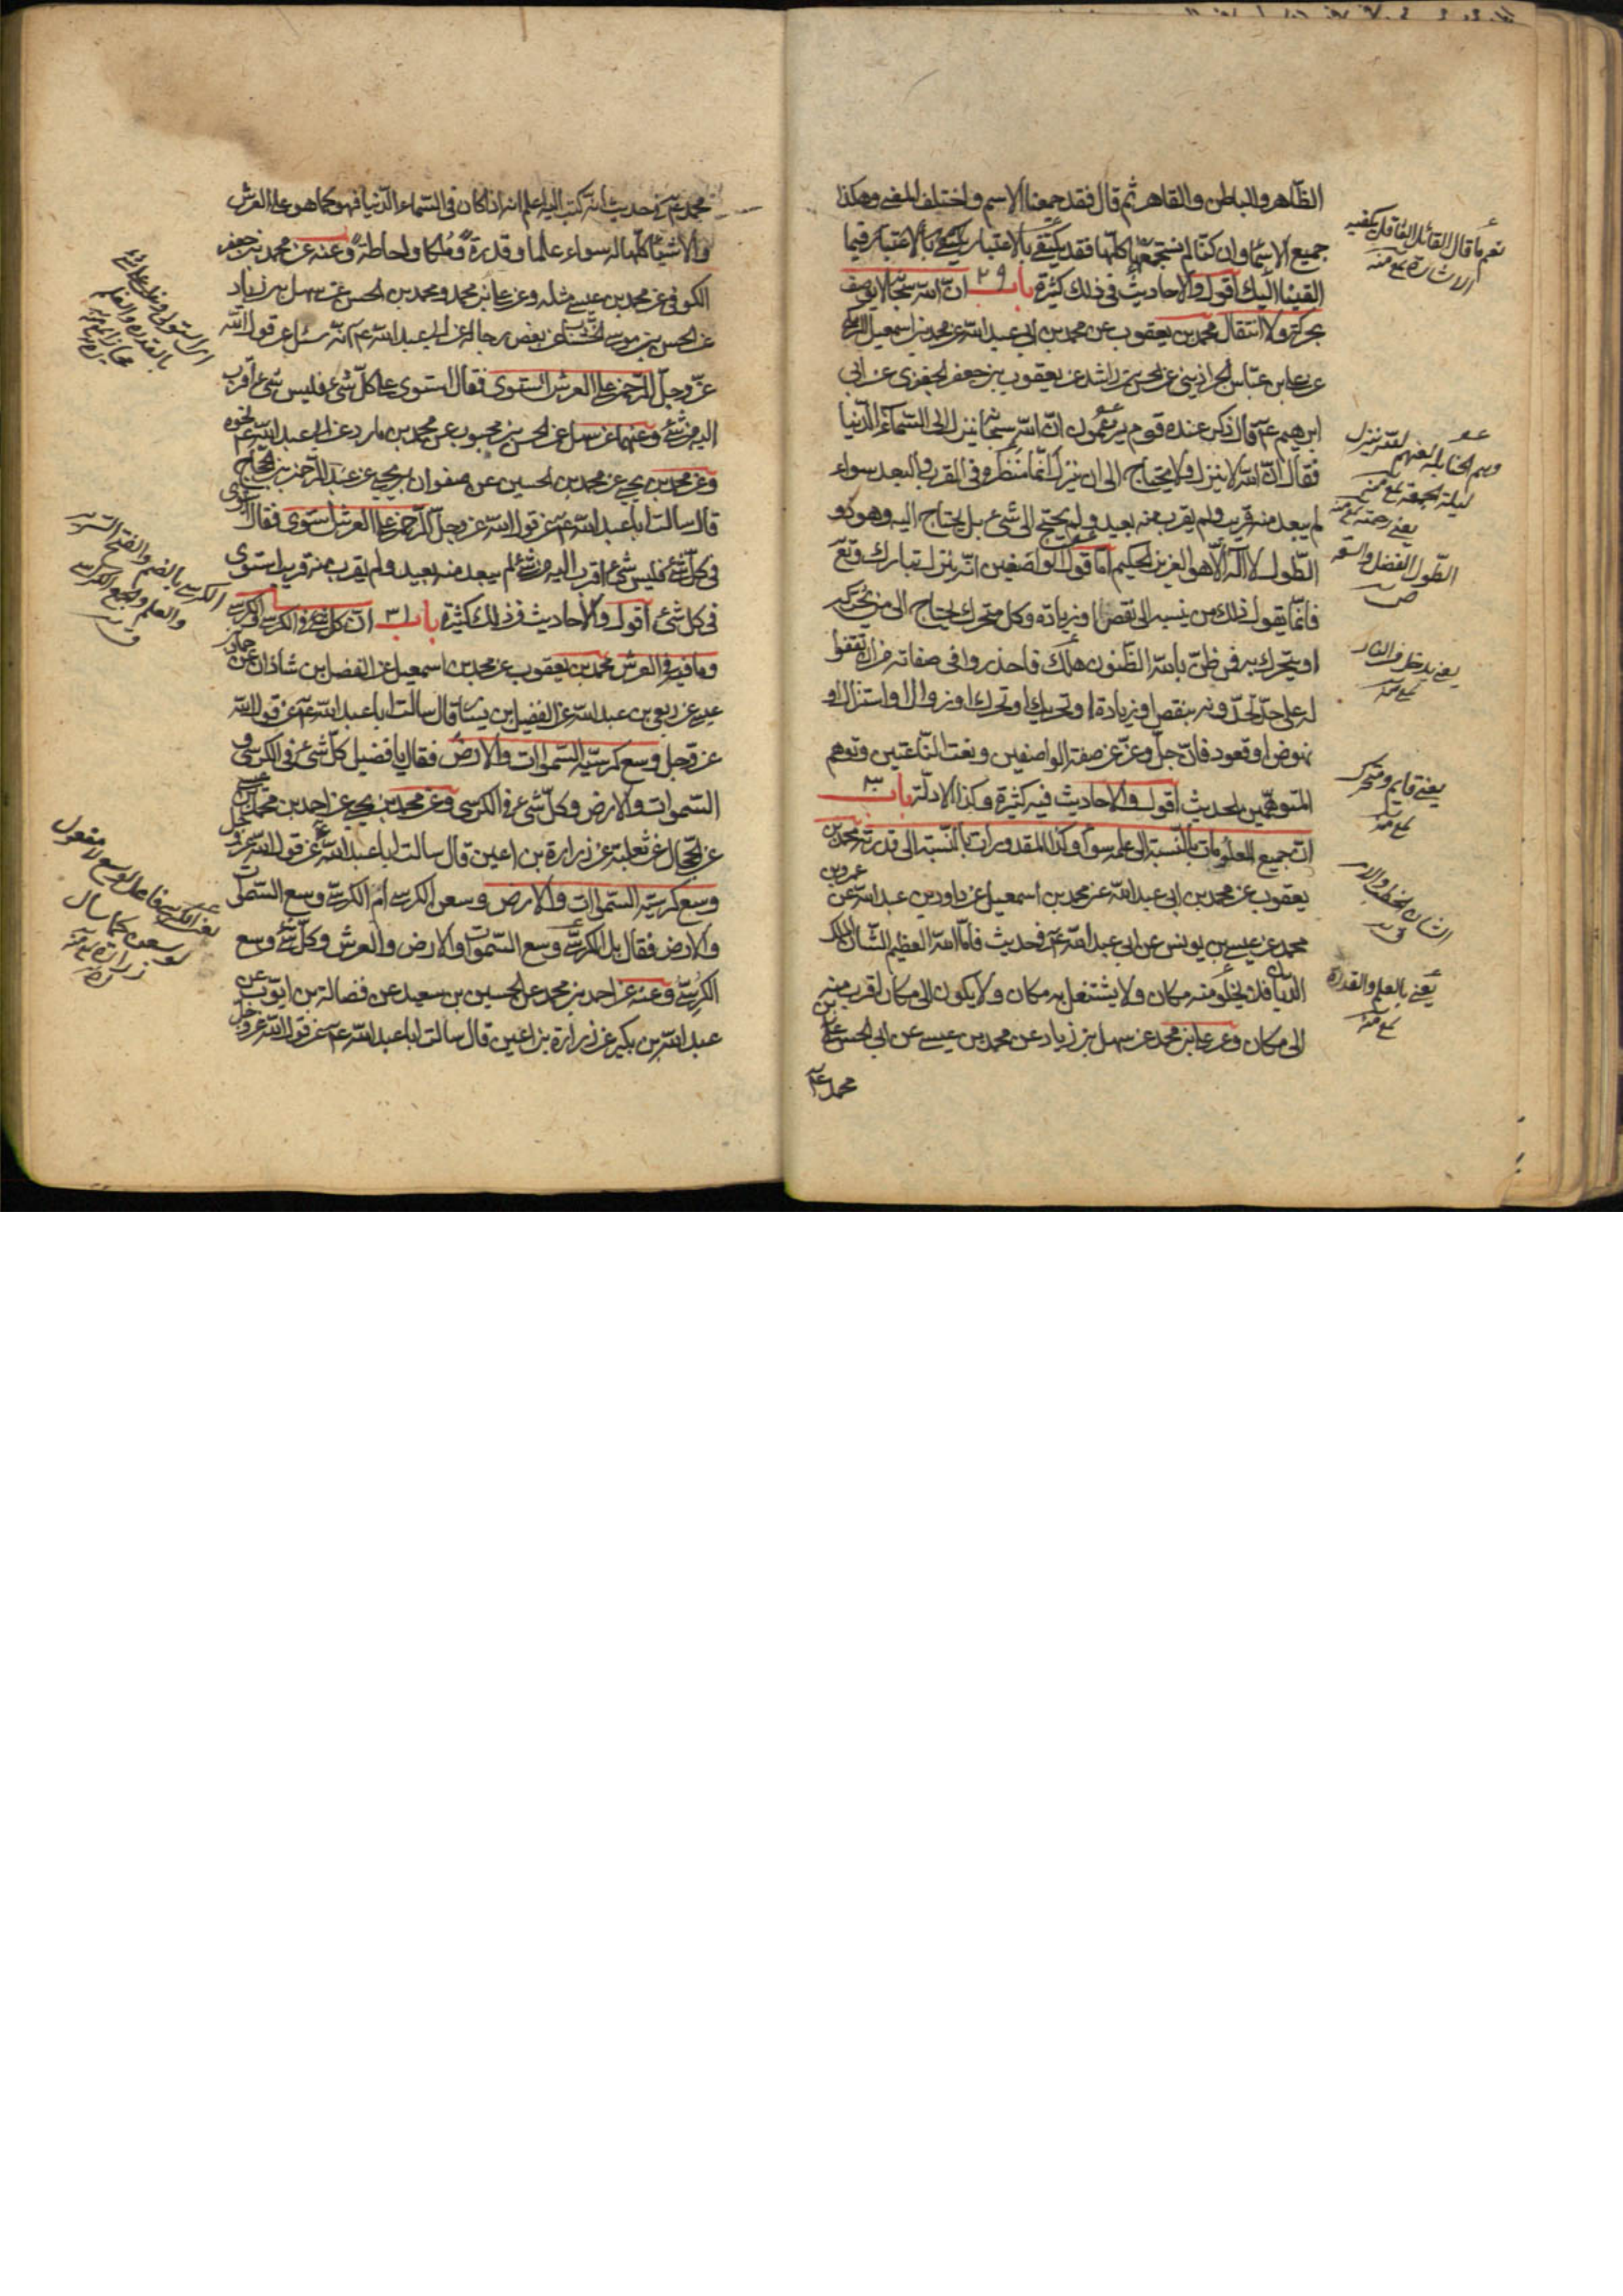 الظاهر والباطن والقاهر ثم قال فقد جمعنا الاسم واختلف المعنى وهكذا
جميع الاسماء وان كنا لم نستجمعها كلها فقد يكتفى بالاعتبار بما
القينا اليك اقول والاحاديث في ذلك كثيرة باب ٢٩ ان الله سبحانه لا يوصف
بحركة ولا انتقال محمد بن يعقوب عن محمد بن ابي عبد الله عن محمد بن اسمعيل البرمكي
عن علي بن عباس الخراذيني عن الحسن بن راشد عن يعقوب بن جعفر الجعفري عن ابي
ابرهيم عم قال ذكر عنده قوم يزعمون ان الله سبحانه ينزل الى السماء الدنيا
فقال ان الله لا ينزل ولا يحتاج الى ان ينزل انما منظره في القرب والبعد سواء
لم يبعد منه قريب ولم يقرب منه بعيد ولم يحتج الى شيء بل يحتاج اليه وهو ذو
الطول لا اله الا هو العزيز الحكيم اما قول الواصفين انه ينزل تبارك وتع
فانما يقول ذلك من ينسبه الى نقص او زيادة وكل متحرك يحتاج الى من يحركه
او يتحرك به فمن ظن بالله الظنون هلك فاحذروا في صفاته من ان تقفوا
له على حد تحدونه بنقص او زيادة او تحريك او تحرك او زوال او استنزال او
نهوض او قعود فان الله جل وعز عن صفة الواصفين ونعت الناعتين وتوهم
المتوهمين الحديث اقول والاحاديث فيه كثيرة وكذا الادلة باب ٣٠
ان جميع المعلومات بالنسبة الى علمه سواء وكذا المقدورات بالنسبة الى قدرته محمد بن
يعقوب عن محمد بن ابي عبد الله عن محمد بن اسمعيل عن داود بن عبد الله عن عمرو بن
محمد عن عيسى بن يونس عن ابي عبد الله عم في حديث فاما الله العظيم الشان الملك
الديان فلا يخلو منه مكان ولا يشتغل به مكان ولا يكون الى مكان اقرب منه
الى مكان وعن علي بن محمد عن سهل بن زياد عن محمد بن عيسى عن ابي الحسن علي بن
محمد عم
الطول الفضل والسعة
يعني بالعلم والقدرة
محمد عم في حديث انه كتب اليه اعلم انه اذا كان في السماء الدنيا فهو كما هو على العرش
والاشياء كلها له سواء علما وقدرة وملكا واحاطة وعنه عن محمد بن جعفر
الكوفي عن محمد بن عيسى مثله وعن علي بن محمد ومحمد بن الحسن عن سهل بن زياد
عن الحسن بن موسى الخشاب عن بعض رجاله عن ابي عبد الله عم انه سئل عن قول الله
عز وجل الرحمن على العرش استوى فقال استوى على كل شيء فليس شيء اقرب
اليه من شيء وعنهما عن سهل عن الحسن بن محبوب عن محمد بن مارد عن ابي عبد الله عم نحوه
وعن محمد بن يحيى عن محمد بن الحسين عن صفوان بن يحيى عن عبد الرحمن بن الحجاج
قال سالت ابا عبد الله عم عن قول الله عز وجل الرحمن على العرش استوى فقال استوى
في كل شيء فليس شيء اقرب اليه من شيء لم يبعد منه بعيد ولم يقرب منه قريب استوى
في كل شيء اقول والاحاديث في ذلك كثيرة باب ٣١ ان كل شيء في الكرسي
وما فيه في العرش محمد بن يعقوب عن محمد بن اسمعيل عن الفضل بن شاذان عن حماد بن
عيسى عن ربعي بن عبد الله عن الفضيل بن يسار قال سالت ابا عبد الله عم عن قول الله
عز وجل وسع كرسيه السموات والارض فقال يا فضيل كل شيء في الكرسي
السموات والارض وكل شيء في الكرسي وعن محمد بن يحيى عن احمد بن محمد بن عيسى
عن الحجال عن ثعلبة عن زرارة بن اعين قال سالت ابا عبد الله عم عن قول الله عز وجل
وسع كرسيه السموات والارض وسعن الكرسي ام الكرسي وسع السموات
والارض فقال بل الكرسي وسع السموات والارض والعرش وكل شيء وسع
الكرسي وعنه عن احمد بن محمد عن الحسين بن سعيد عن فضالة بن ايوب عن
عبد الله بن بكير عن زرارة بن اعين قال سالت ابا عبد الله عم عن قول الله عز وجل
الكرسي بالضم والفتح السرير